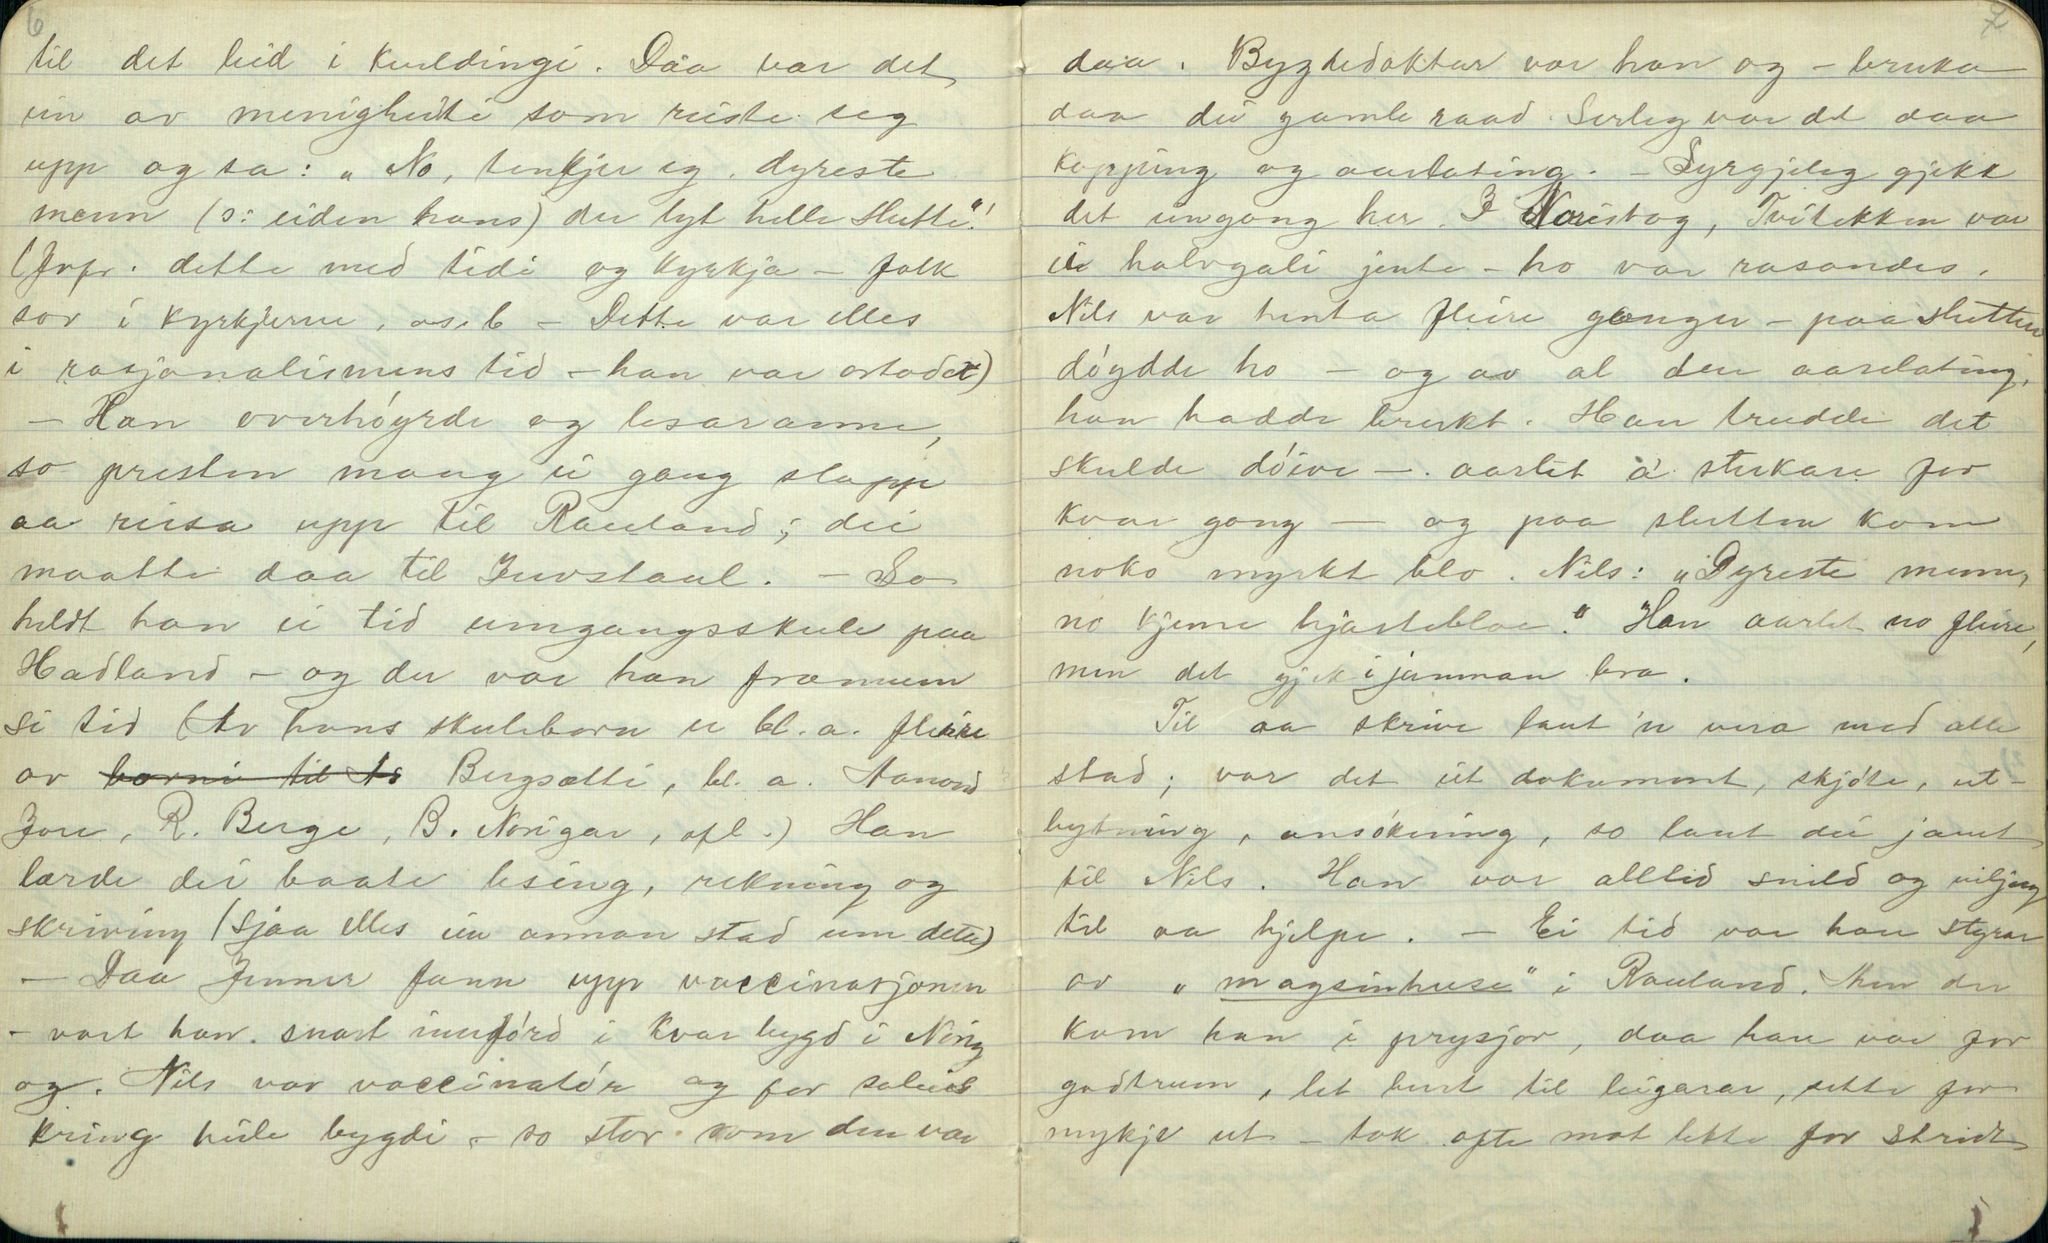 6
til det leid i kveldingi. Daa var det
ein av menigheiti som reiste seg
upp og sa: „No, tenkjer eg, dyreste
menn (ɔ: eiden hans) du lyt helle slutte"!
(Jvfr. dette med tidi og kyrkja – folk
sov i kyrkjerne, os.b – Dette var elles
i rasjonalismens tid – han var ortodox)
– Han overhøyrde og lesaranne,
so presten mang ei gang slapp
aa reisa upp til Rauland; dei
maatte daa til Juvstaul. – So
heldt han ei tid umgangsskule paa
Hadland – og der var han framum
si tid (Av hans skuleborn er bl.a. fleire
av borni til As Bergsætti, bl. a. Aanond
Jore, R. Berge, B. Norigar, ofl.) Han
lærde dei baate lesing, rekning og
skriving (sjaa elles ein annan stad um dette)
– Daa Jenner fann upp vaccinasjonen
– vart han snart innførd i kvar bygd i Norig
og. Nils var vaccinatór og for soleis
kring heile bygdi – so stor som den var
7
daa. Bygdedoktar var han og – bruka
daa dei gamle raad. Serleg var det daa
kopping og aarelating. – Syrgjeleg gjekk
det eingong her. I Noristog, Tvitekkin var
ei halvgali jente – ho var rasandes.
Nils var henta fleire gonger – paa slutten
døydde ho – og av al den aarelating,
han hadde brukt. Han trudde det
skulde døive – aarlét á sterkare for
kvar gong – og paa slutten kom
noko myrkt blo. Nils: „Dyreste menn,
no kjeme hjarteblóe." Han aarlét no fleire,
men det gjek ijamnan bra.
Til aa skrive laut 'n vera med alle
stad; var det eit dokument, skjóte, ut-
bytning, ansókning, so laut dei jamt
til Nils. Han var alltid snild og viljug
til aa hjelpe. – Ei tid var han styrar
av „magsinhuse" i Rauland. Men der
kom han i prysjor, daa han var for
godtruen, let burt til leigarar, sette for
mykje ut – tok ofte mot lette for stridt